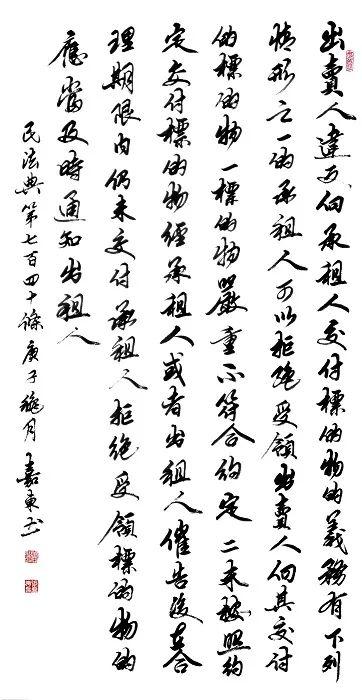 出賣人違反向承租人交付標的物的義務有下列
情形之一的承租人可以拒絕受領出賣人向其交付
的標的物一標的物嚴重不符合約定二未按照約
定交付標的物經承租人或者出租人催告後在合
理期限内仍未交付承租人拒絕受領標的物的
應當及時通知出租人
民法典第七百四十條庚子月嘉東书